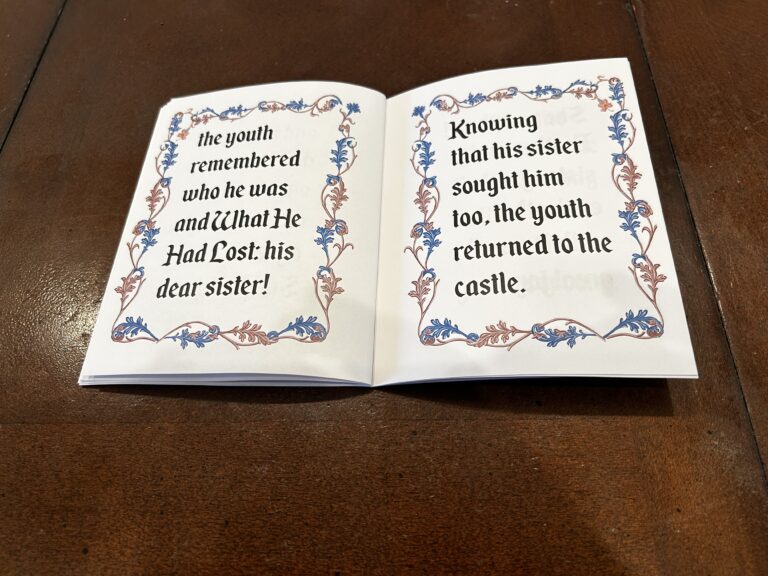 the youth
remembered
who he was
and What He
Had Lost: his
dear sister!
Knowing
that his sister
sought him
too, the youth
returned to the
castle.